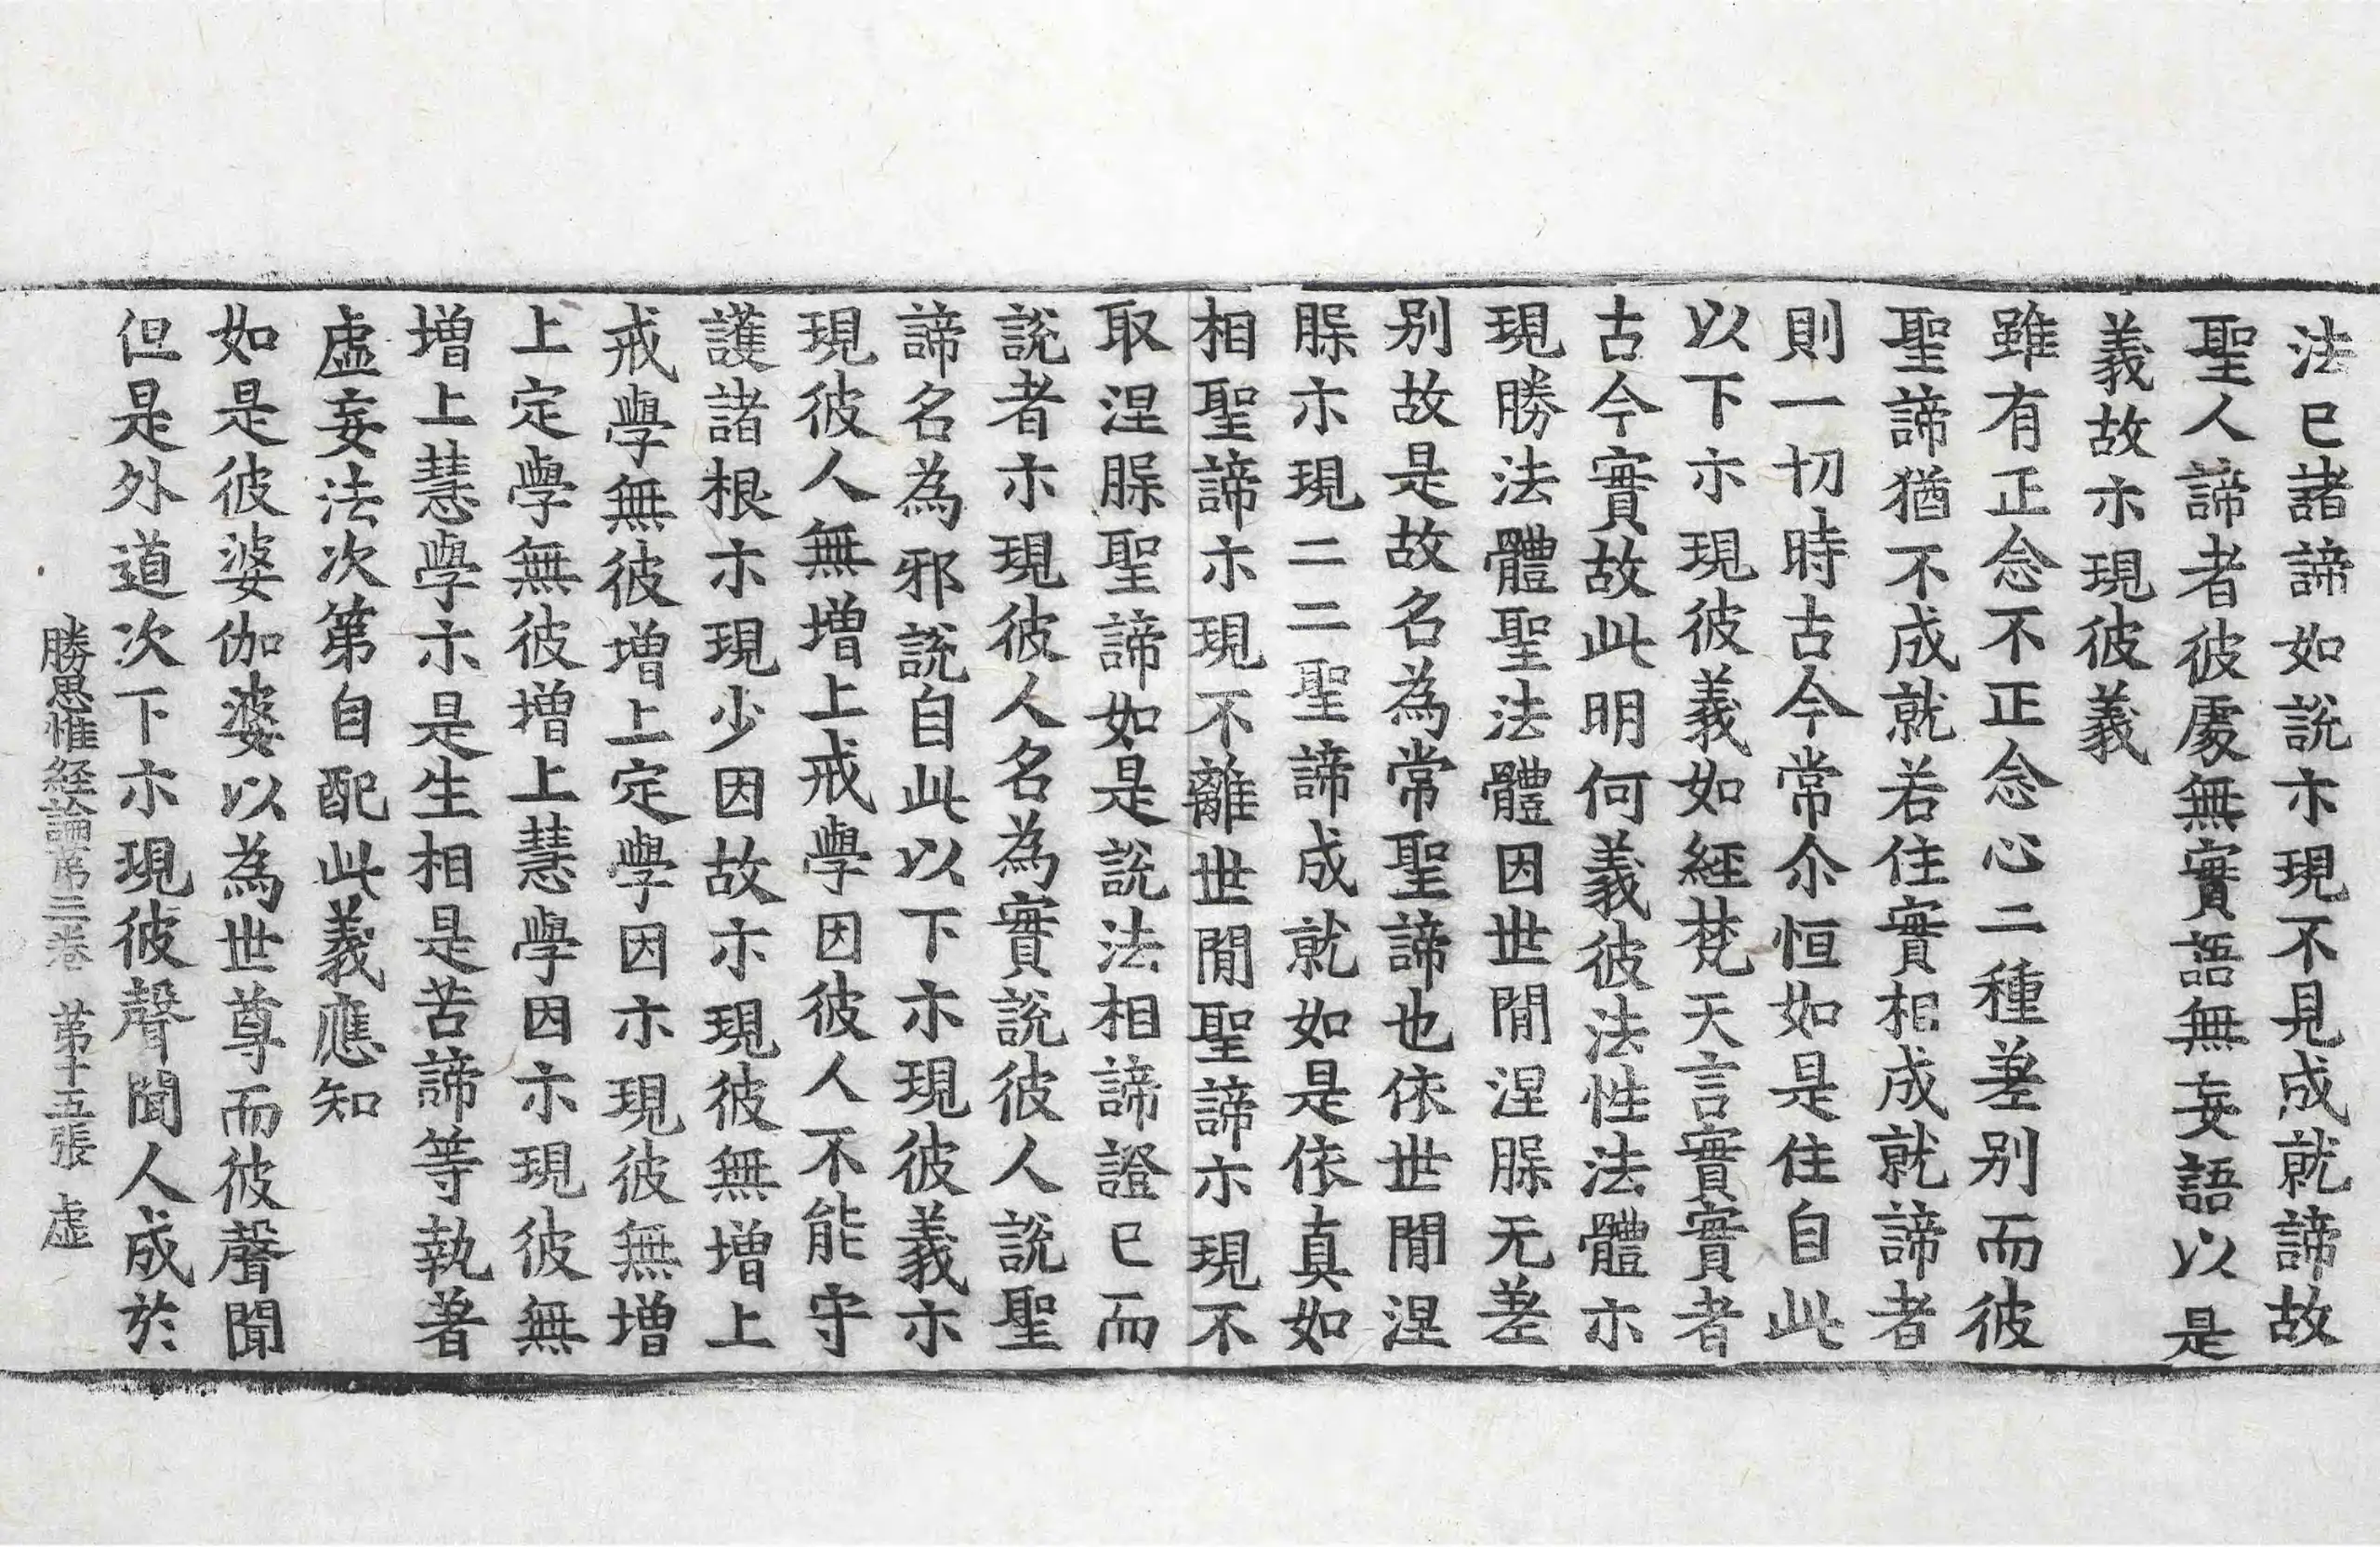 法已諸諦如說亦現不見成就諦故
聖人諦者彼處無實語無妄語以是
義故亦現彼義
雖有正念不正念心二種差别而彼
聖諦猶不成就若住實相成就諦者
則一切時古今常尒恒如是住自此
以下亦現彼義如經梵天言實實者
古今實故此明何義彼法性法體亦
現勝法體聖法體因世間涅槃无差
别故是故名為常聖諦也依世間涅
槃亦現二二聖諦成就如是依真如
相聖諦亦現不離世間聖諦亦現不
取涅槃聖諦如是說法相諦證已而
說者亦現彼人名為實說彼人說聖
諦名為邪說自此以下亦現彼義亦
現彼人無增上戒學因彼人不能守
護諸根亦現少因故亦現彼無增上
戒學無彼增上定學因亦現彼無增
上定學無彼增上慧學因亦現彼無
增上慧學亦是生相是苦諦等執著
虛妄法次第自配此義應知
如是彼婆伽婆以為世尊而彼聲聞
但是外道次下亦現彼聲聞人成於
勝思惟経論第二卷 第十五張 虛